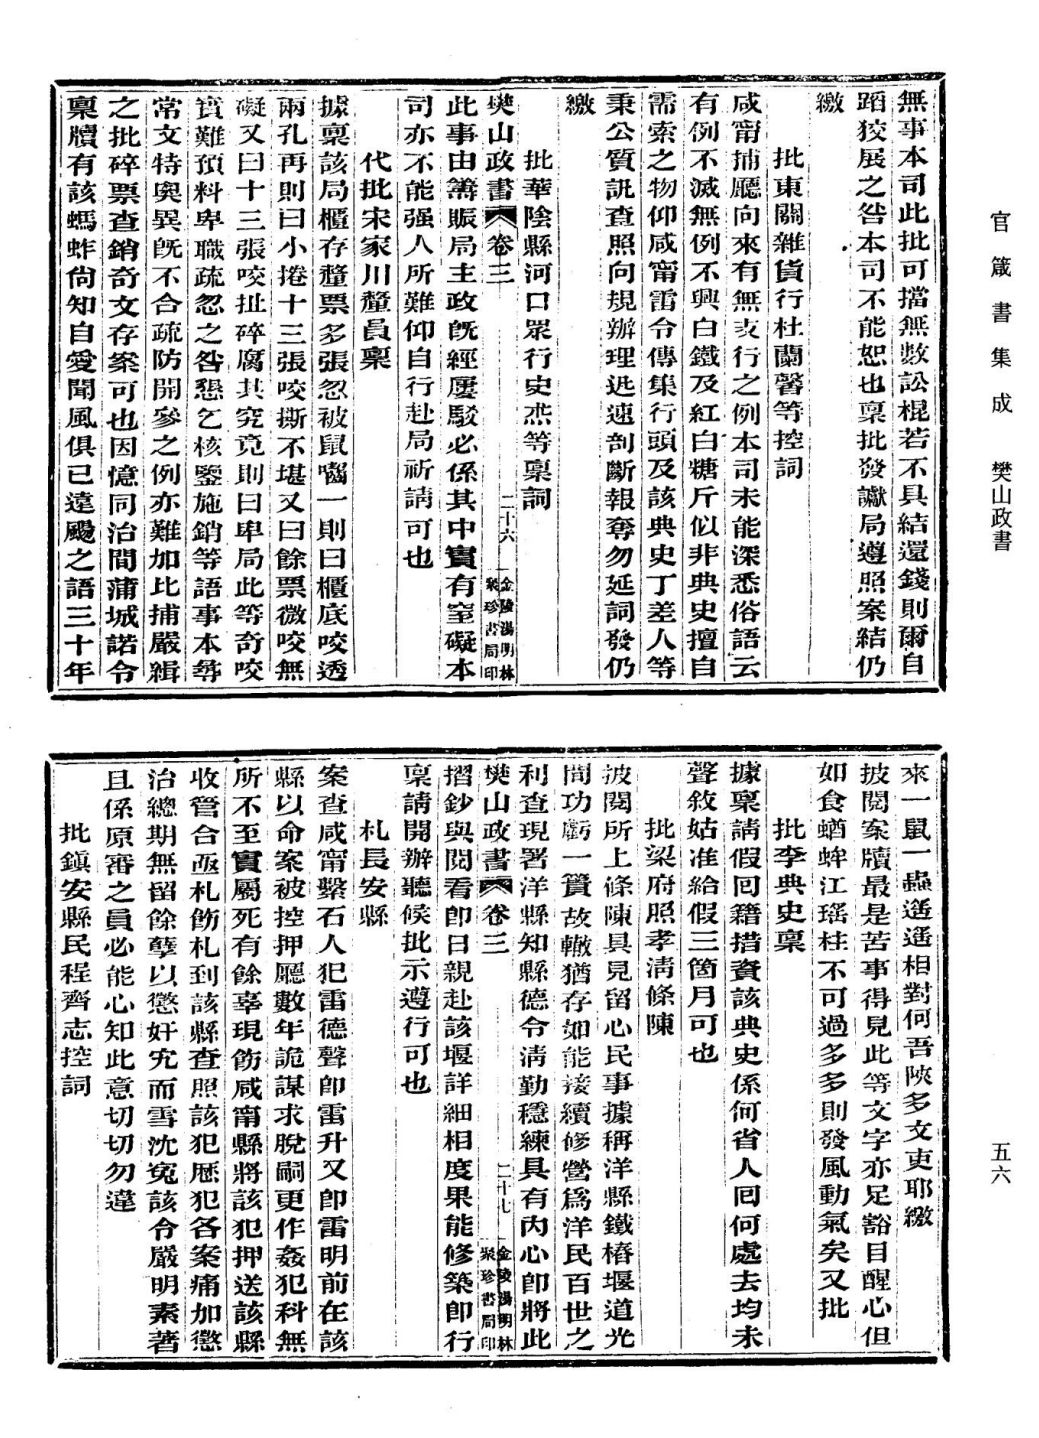 官箴書集成　樊山政書
五六
無事本司此批可擋無數訟棍若不具結還錢則爾自
蹈狡展之咎本司不能恕也稟批發讞局遵照案結仍
繳
批東關雜貨行杜蘭馨等控詞
咸甯捕廳向來有無支行之例本司未能深悉俗語云
有例不滅無例不興白鐵及紅白糖斤似非典史擅自
需索之物仰咸甯雷令傳集行頭及該典史丁差人等
秉公質訊查照向規辦理迅速剖斷報奪勿延詞發仍
繳
批華陰縣河口眾行史杰等稟詞
樊山政書　卷三　二十六　金陵湯明林聚珍書局印
此事由籌賑局主政既經屢駁必係其中實有窒礙本
司亦不能强人所難仰自行赴局祈請可也
代批宋家川釐員稟
據稟該局櫃存釐票多張忽被鼠嚙一則曰櫃底咬透
兩孔再則曰小捲十三張咬撕不堪又曰餘票微咬無
礙又曰十三張咬扯碎腐其究竟則曰卑局此等奇咬
實難預料卑職疏忽之咎懇乞核鑒施銷等語事本尋
常文特奧異既不合疏防開參之例亦難加比捕嚴緝
之批碎票查銷奇文存案可也因憶同治間蒲城諾令
稟牘有該螞蚱尙知自愛聞風俱已遠颺之語三十年
來一鼠一蟲遙遙相對何吾陝多文吏耶繳
披閱案牘最是苦事得見此等文字亦足豁目醒心但
如食蝤蛑江瑤柱不可過多多則發風動氣矣又批
批李典史稟
據稟請假回籍措資該典史係何省人回何處去均未
聲敘姑准給假三箇月可也
批梁府照孝淸條陳
披閱所上條陳具見留心民事據稱洋縣鐵樁堰道光
間功虧一簣故轍猶存如能接續修營爲洋民百世之
利查現署洋縣知縣德令淸勤穩練具有內心卽將此
樊山政書　卷三　二十七　金陵湯明林聚珍書局印
摺鈔與閱看卽日親赴該堰詳細相度果能修築卽行
稟請開辦聽候批示遵行可也
札長安縣
案查咸甯繫石人犯雷德聲卽雷升又卽雷明前在該
縣以命案被控押廳數年詭謀求脫嗣更作姦犯科無
所不至實屬死有餘辜現飭咸甯縣將該犯押送該縣
收管合亟札飭札到該縣查照該犯歷犯各案痛加懲
治總期無留餘孽以懲奸宄而雪沈冤該令嚴明素著
且係原審之員必能心知此意切切勿違
批鎮安縣民程齊志控詞